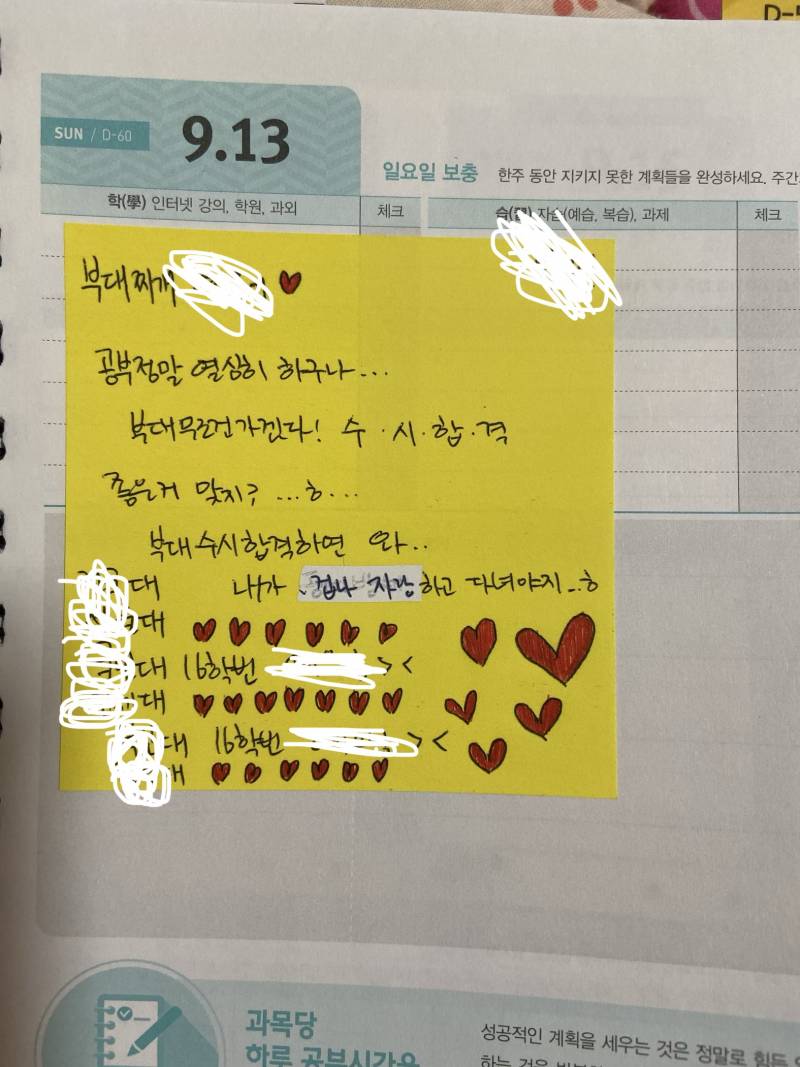 D-5
SUN / D-60
9.13
일요일 보충 한주 동안 지키지 못한 계획들을 완성하세요. 주간
학(學) 인터넷 강의, 학원, 과외 체크 자습(예습, 복습), 과제 체크
부대찌개 ♥
공부정말 열심히 하구나...
부대무조건가겠다! 수·시·합·격
좋은거 맞지? ...ㅎ...
부대수시합격하면 와..
대 내가 겁나 자랑하고 다녀야지...ㅎ
대 ♥ ♥ ♥ ♥ ♥ ♥
대 16학번 > <
대 ♥ ♥ ♥ ♥ ♥ ♥ ♥
대 16학번 > <
♥ ♥ ♥ ♥ ♥ ♥
과목당
하루 공부시간은
성공적인 계획을 세우는 것은 정말로 힘든
하는 것은